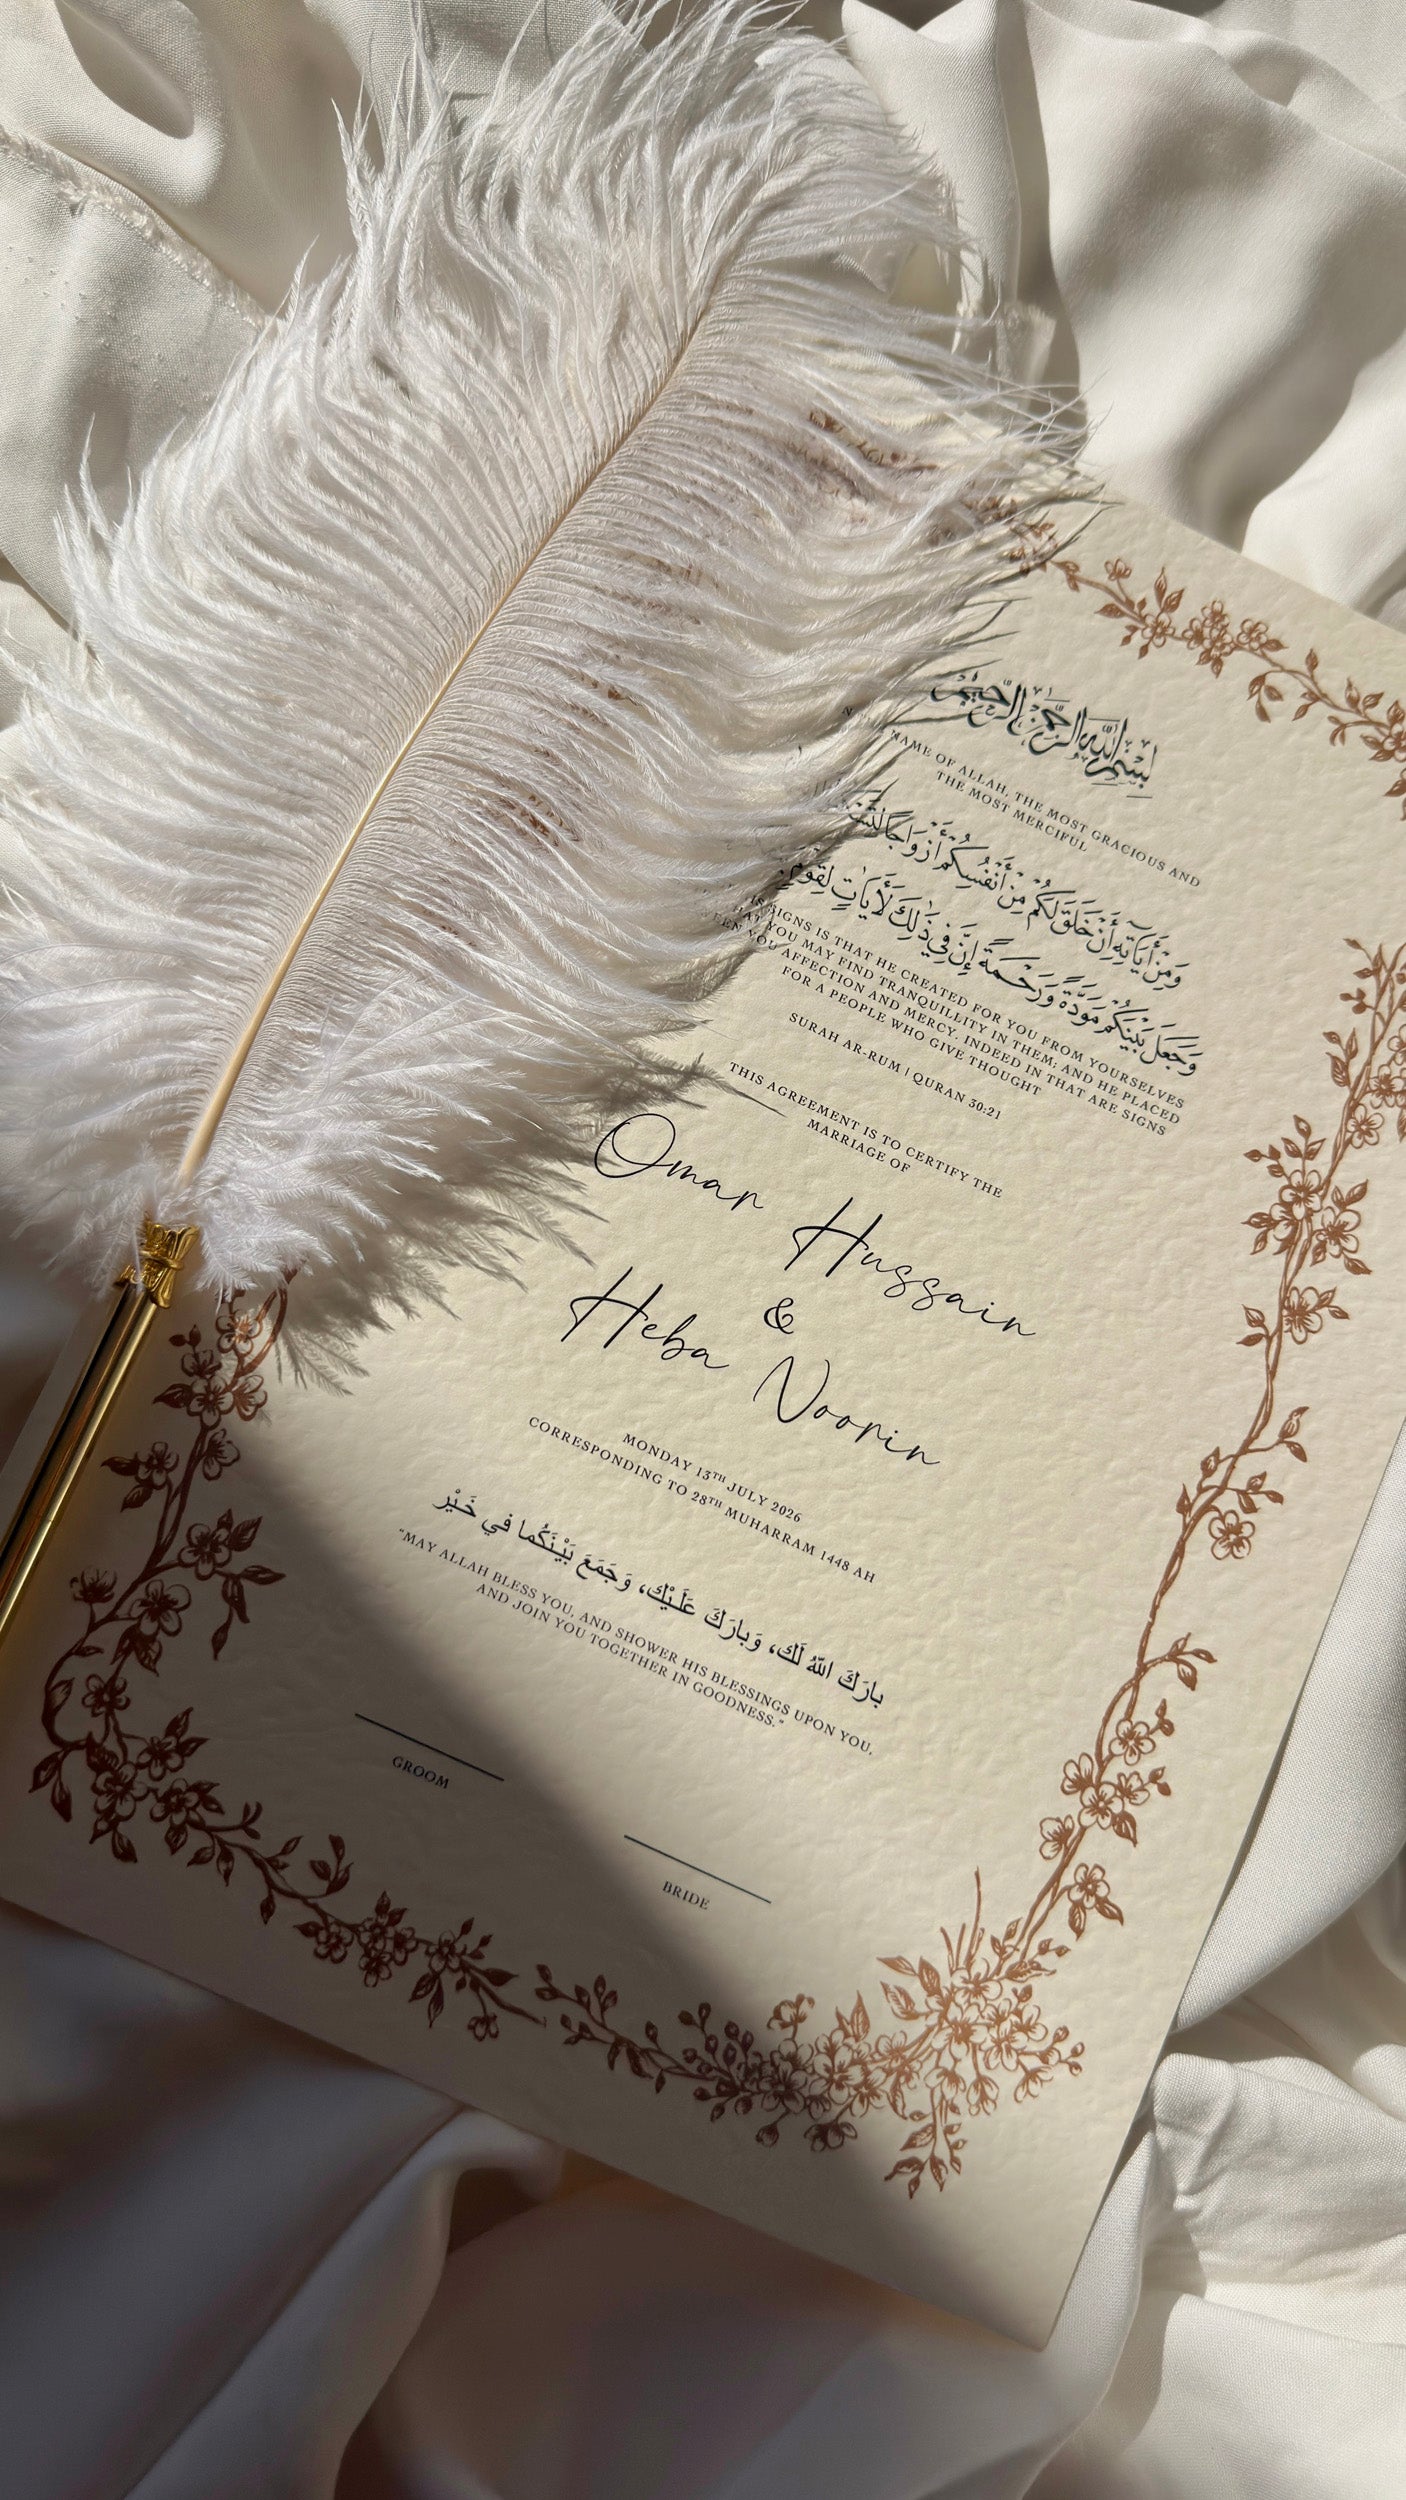 بِسْمِ اللَّهِ الرَّحْمَنِ الرَّحِيمِ
NAME OF ALLAH, THE MOST GRACIOUS AND
THE MOST MERCIFUL
وَمِنْ آيَاتِهِ أَنْ خَلَقَ لَكُم مِّنْ أَنفُسِكُمْ أَزْوَاجًا
وَجَعَلَ بَيْنَكُم مَّوَدَّةً وَرَحْمَةً إِنَّ فِي ذَٰلِكَ لَآيَاتٍ لِّقَوْمٍ
SIGNS IS THAT HE CREATED FOR YOU FROM YOURSELVES
YOU MAY FIND TRANQUILLITY IN THEM; AND HE PLACED
YOU AFFECTION AND MERCY. INDEED IN THAT ARE SIGNS
FOR A PEOPLE WHO GIVE THOUGHT
SURAH AR-RUM | QURAN 30:21
THIS AGREEMENT IS TO CERTIFY THE
MARRIAGE OF
Omar Hussain
&
Heba Noorin
MONDAY 13TH JULY 2026
CORRESPONDING TO 28TH MUHARRAM 1448 AH
بارَكَ اللهُ لَكَ، وَبارَكَ عَلَيْكَ، وَجَمَعَ بَيْنَكُما في خَيْر
"MAY ALLAH BLESS YOU, AND SHOWER HIS BLESSINGS UPON YOU,
AND JOIN YOU TOGETHER IN GOODNESS."
GROOM
BRIDE